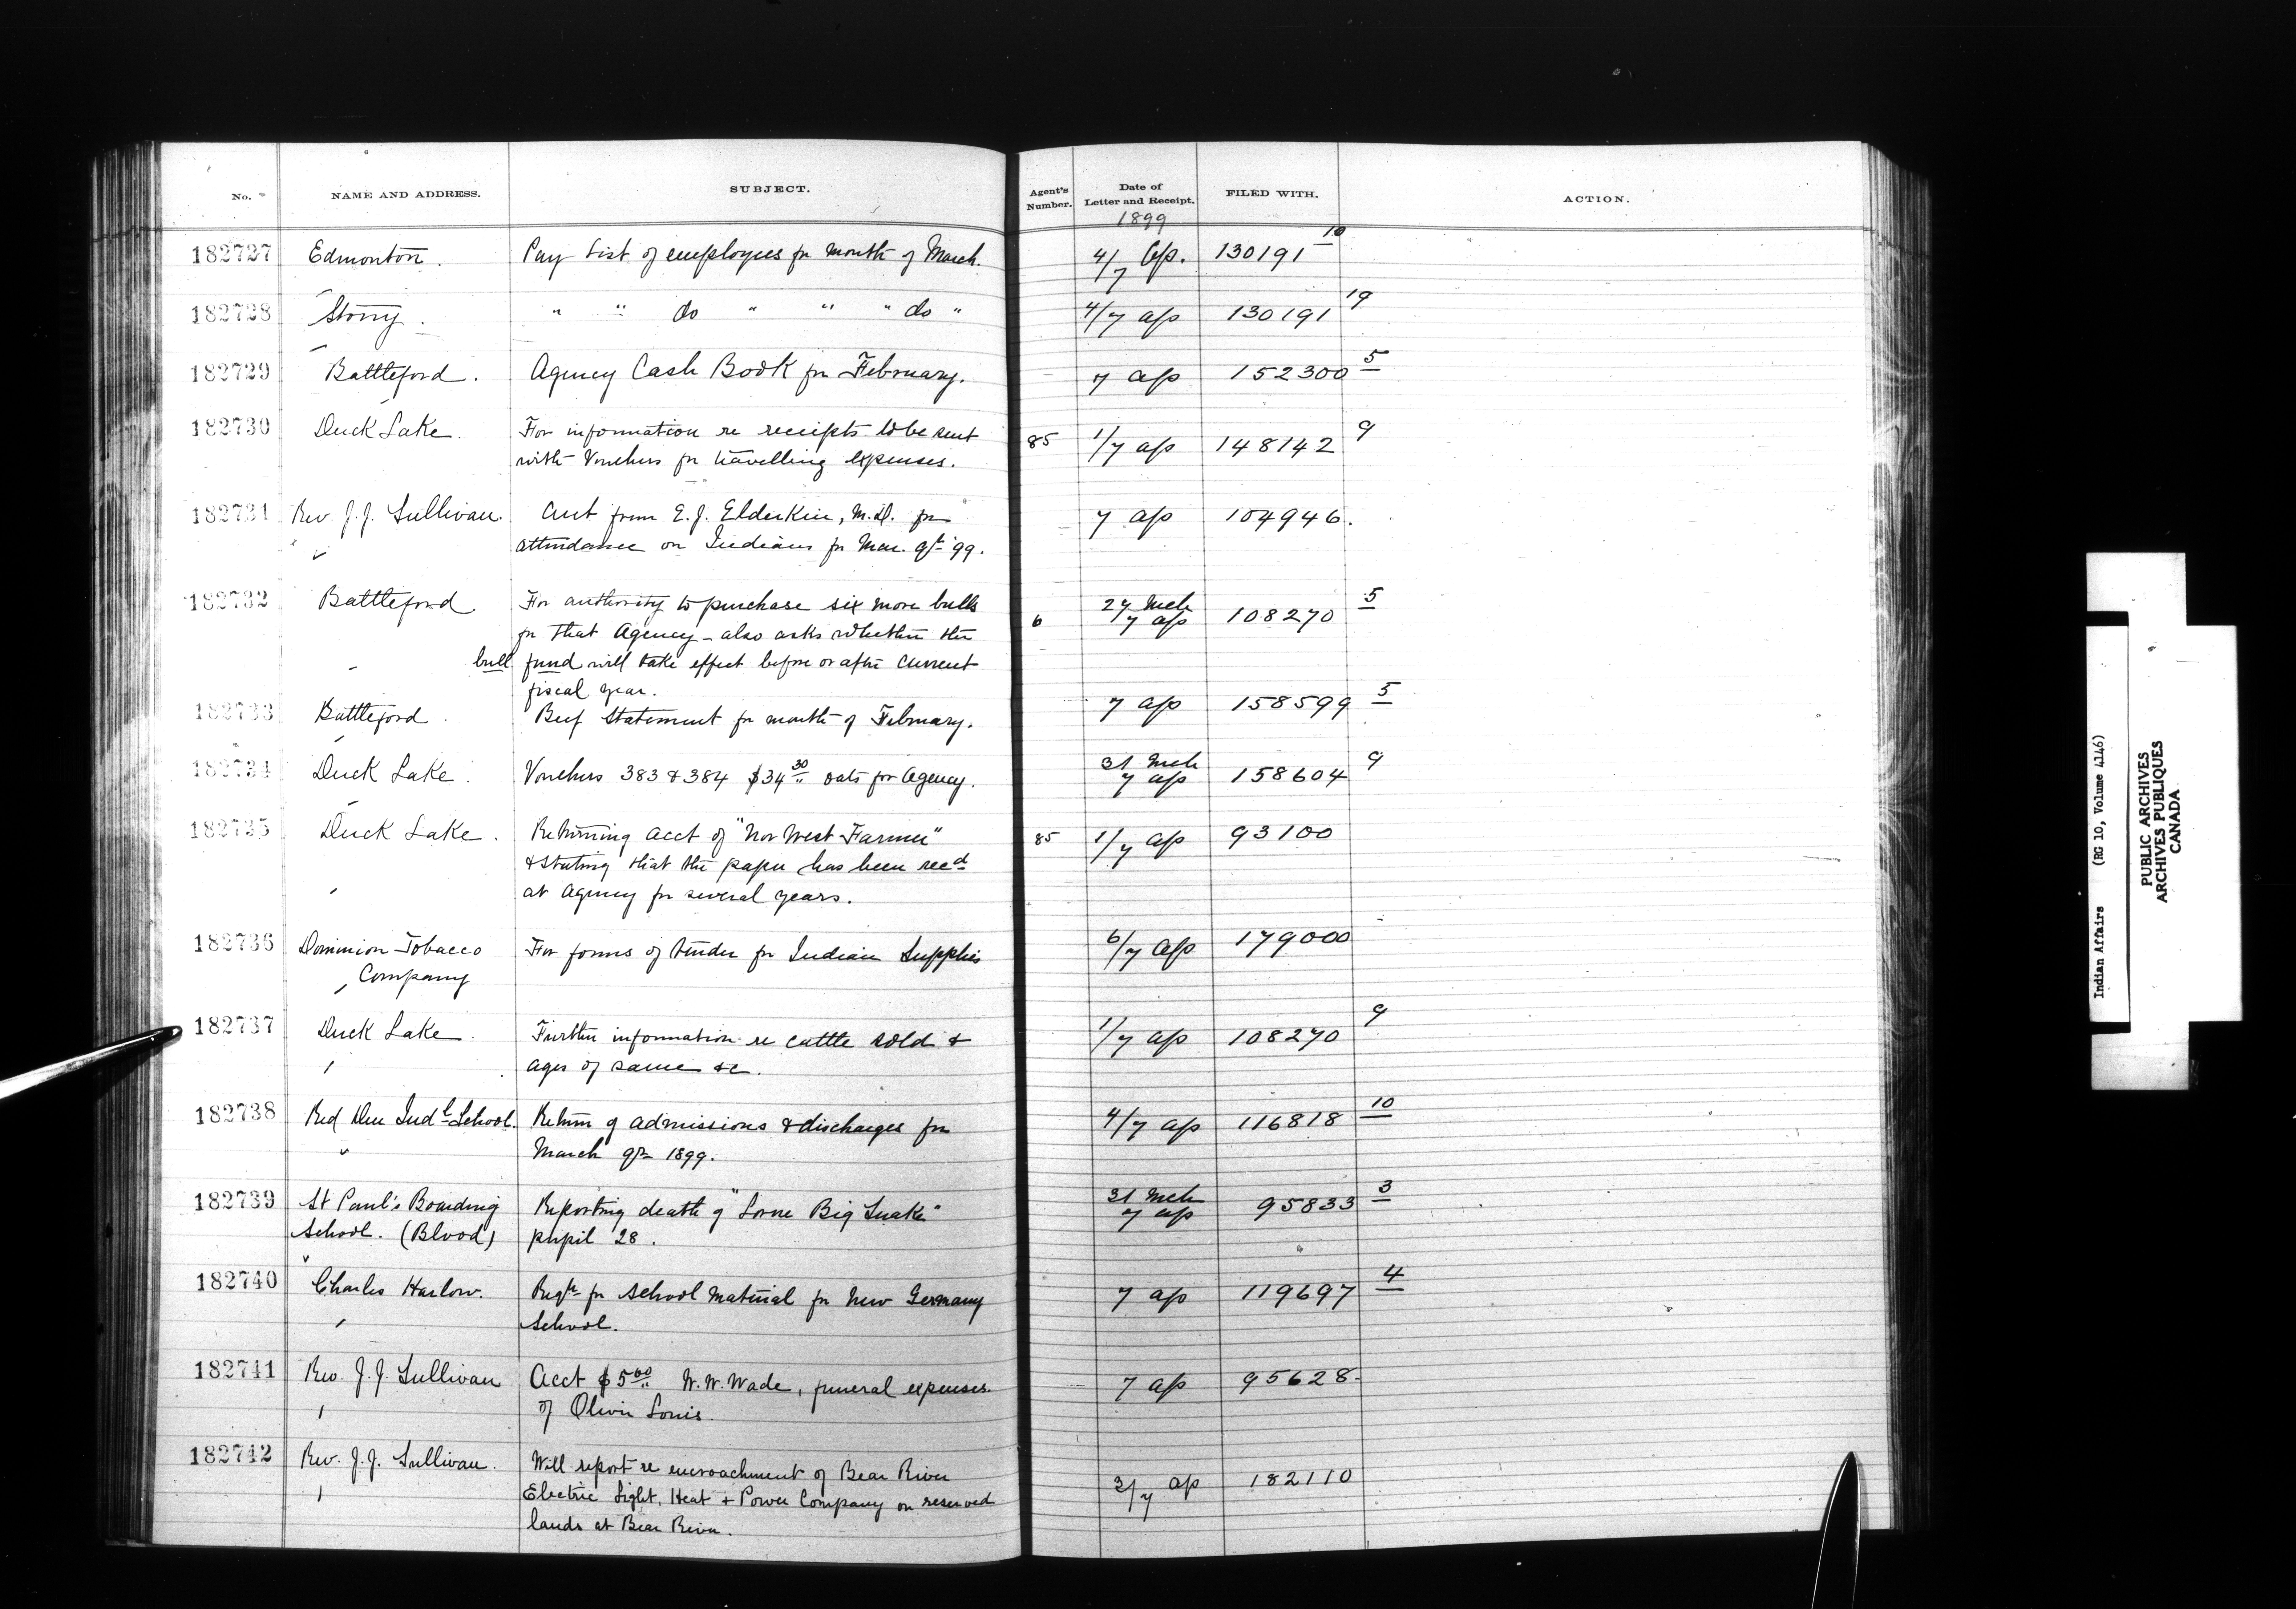 No. NAME AND ADDRESS. SUBJECT. Agent's Number. Date of Letter and Receipt. FILED WITH. ACTION.
1899
182727 Edmonton. Pay List of employees for month of March. 4/7 Ap. 130191 10
182728 Stony. " " do " " " do " 4/7 ap 130191 19
182729 Battleford. Agency Cash Book for February. 7 ap 152300 5
182730 Duck Lake. For information re receipts to be sent 85 1/7 ap 148142 9
with Vouchers for travelling expenses.
182731 Rev. J. J. Sullivan. Acct from E. J. Elderkin, M.D. for 7 ap 104946.
attendance on Indians for Mar. qr '99.
182732 Battleford For authority to purchase six more bulls 6 27 Mch 7 ap 108270 5
for that Agency - also asks whether the
bull fund will take effect before or after current
fiscal year.
182733 Battleford. Beef Statement for month of February. 7 ap 158599 5
182734 Duck Lake. Vouchers 383 & 384 $34 30 oats for Agency. 31 Mch 7 ap 158604 9
182735 Duck Lake. Returning acct of "Nor West Farmer" 85 1/7 ap 93100
& stating that the paper has been recd
at Agency for several years.
182736 Dominion Tobacco For forms of tender for Indian Supplies 6/7 ap 179000
Company
182737 Duck Lake. Further information re cattle sold & 1/7 ap 108270 9
ages of same &c.
182738 Red Deer Indl School. Return of admissions & discharges for 4/7 ap 116818 10
March qr 1899.
182739 St Paul's Boarding Reporting death of "Lorne Big Snake" 31 Mch 7 ap 95833 3
School. (Blood) pupil 28.
182740 Charles Harlow. Reqn for school material for New Germany 7 ap 119697 4
School.
182741 Rev. J. J. Sullivan Acct $5 00 W. W. Wade, funeral expenses 7 ap 95628.
of Oliver Louis.
182742 Rev. J. J. Sullivan. Will report re encroachment of Bear River 3/7 ap 182110
Electric Light, Heat & Power Company on reserved
lands at Bear River.
Indian Affairs (RG 10, Volume 4146)
PUBLIC ARCHIVES
ARCHIVES PUBLIQUES
CANADA